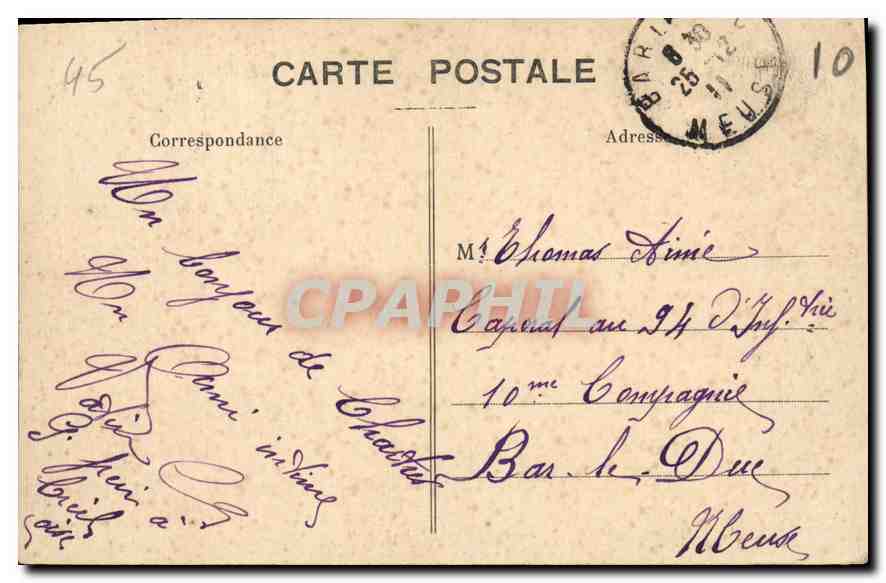 45
CARTE POSTALE
BAR-L
8 30
25 -12
11
MEUSE
10
Correspondance
Adresse
Un bonjour de Chartres
Un ami intime
Mr. Thomas Aimé
Caporal au 94 d'Inf.trie
10me Compagnie
Bar-le-Duc
Meuse
CPARHIL